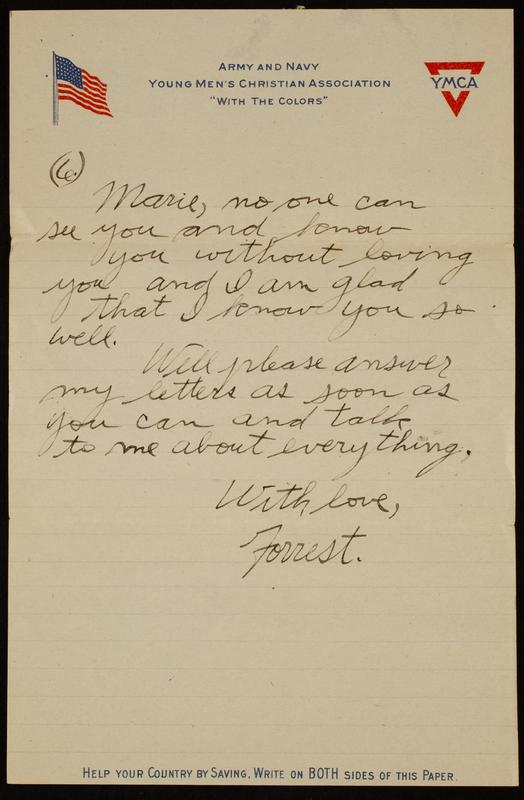 ARMY AND NAVY
YOUNG MEN'S CHRISTIAN ASSOCIATION
"WITH THE COLORS"
YMCA
(6.)
Marie, no one can
see you and know
you without loving
you and I am glad
that I know you so
well.
Well please answer
my letters as soon as
you can and talk
to me about everything.
With love,
Forrest.
HELP YOUR COUNTRY BY SAVING, WRITE ON BOTH SIDES OF THIS PAPER.